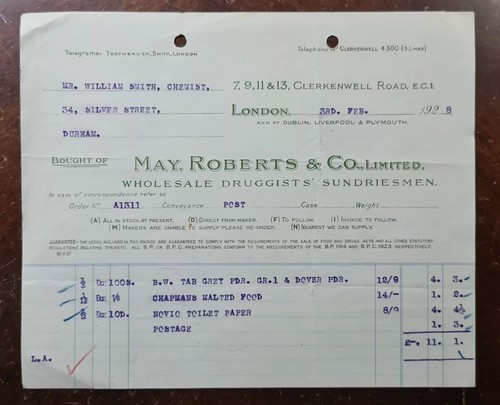 Telegrams: Toothbrush, Smith, London
Telephone No Clerkenwell 4300 (5 Lines)
Mr. William Smith, Chemist,
34, Silver Street,
Durham.
7, 9, 11 & 13, Clerkenwell Road, E.C.1.
London, 3rd. Feb. 1928
and at Dublin, Liverpool & Plymouth.
Bought of May, Roberts & Co., Limited,
Wholesale Druggists' Sundriesmen.
In case of correspondence refer to
Order No. A1311 Conveyance POST Case Weight
(A) All in stock at present. (D) Direct from maker. (F) To follow. (I) Invoice to follow.
(M) Makers are unable to supply please re-order. (N) Nearest we can supply.
Guarantee.-The goods included in this invoice are guaranteed to comply with the requirements of the Sale of Food and Drugs Acts and all other statutory
regulations relating thereto. All B.P. or B.P.C. preparations conform to the requirements of the B.P. 1914 and B.P.C. 1923 respectively.
Doz 100s. B.W. Tab Grey Pdr. Gr.1 & Dover Pdr. 12/9 4. 3.
1/12 Doz 1/6 Chapmans Malted Food 14/- 1. 2.
1/2 Doz 10D. Novio Toilet Paper 8/9 4. 4½
Postage 1. 3.
11. 1.
L.A.